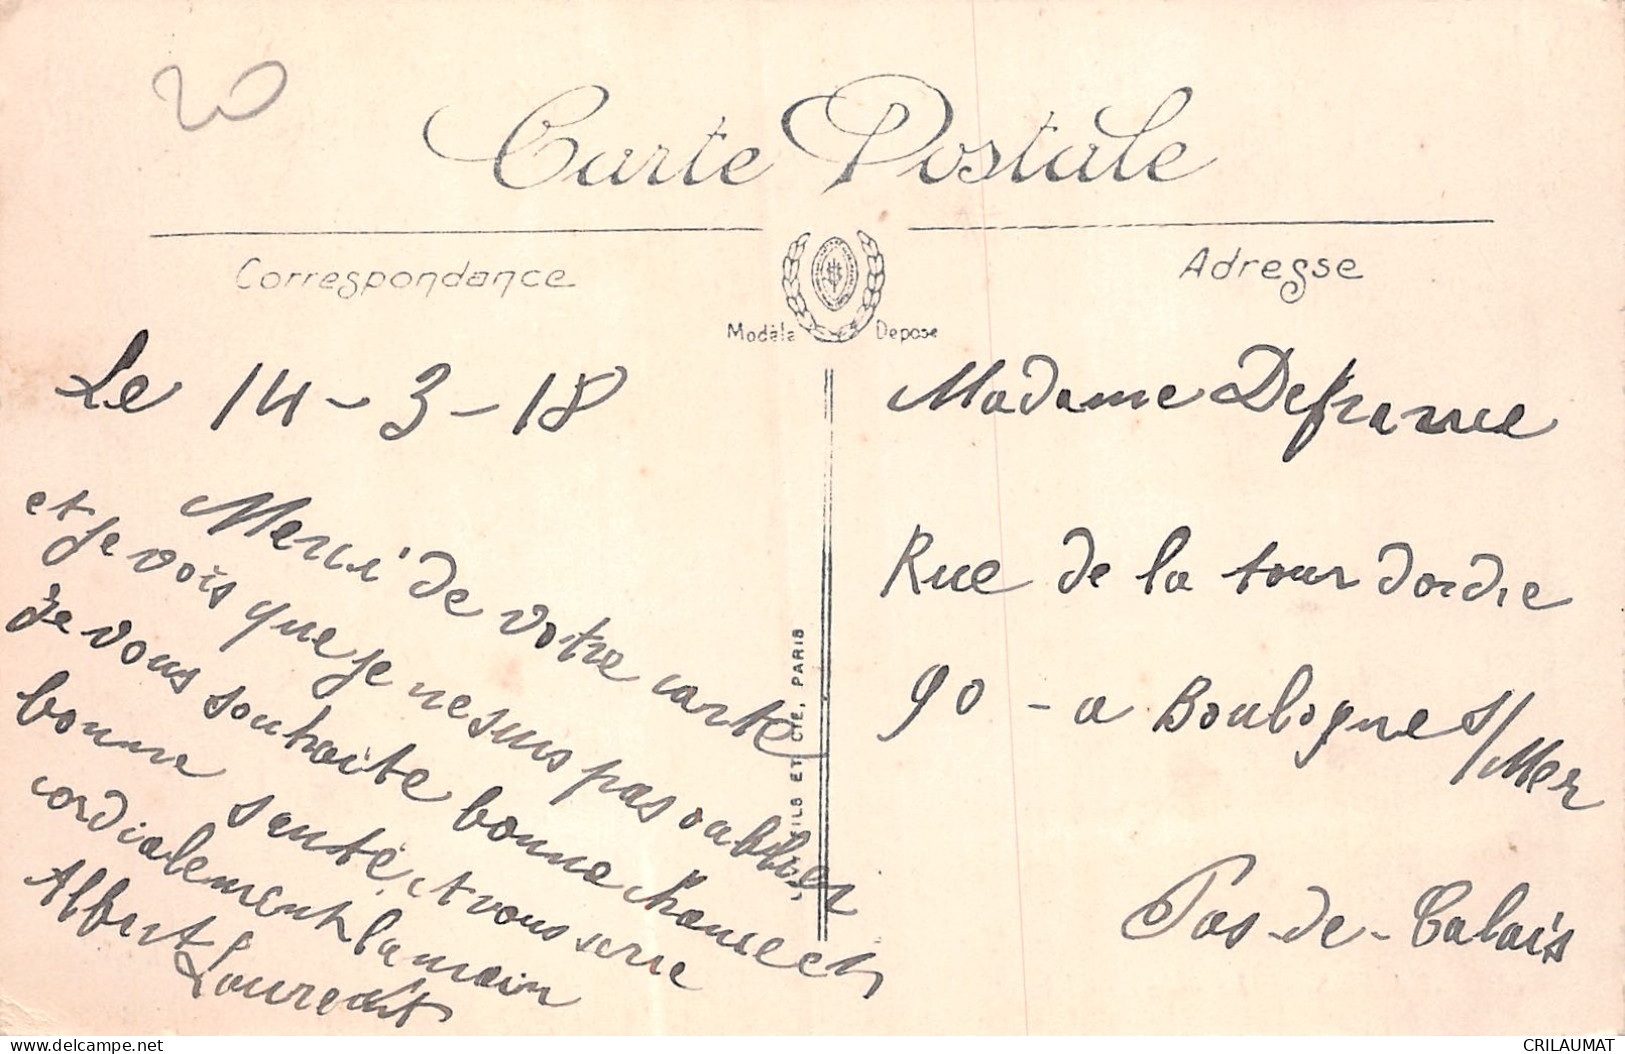 20
Carte Postale
Correspondance
Adresse
Modèle Déposé
Le 14-3-18
Merci de votre carte
et je vois que je ne suis pas oublier
Je vous souhaite bonne chance et
bonne santé, et vous serre
cordialement la main
Albert Lauredit
ILS ET CIE, PARIS
Madame Defrance
Rue de la tour dordre
90 - a Boulogne s/Mer
Pas-de-Calais
delcampe.net
CRILAUMAT